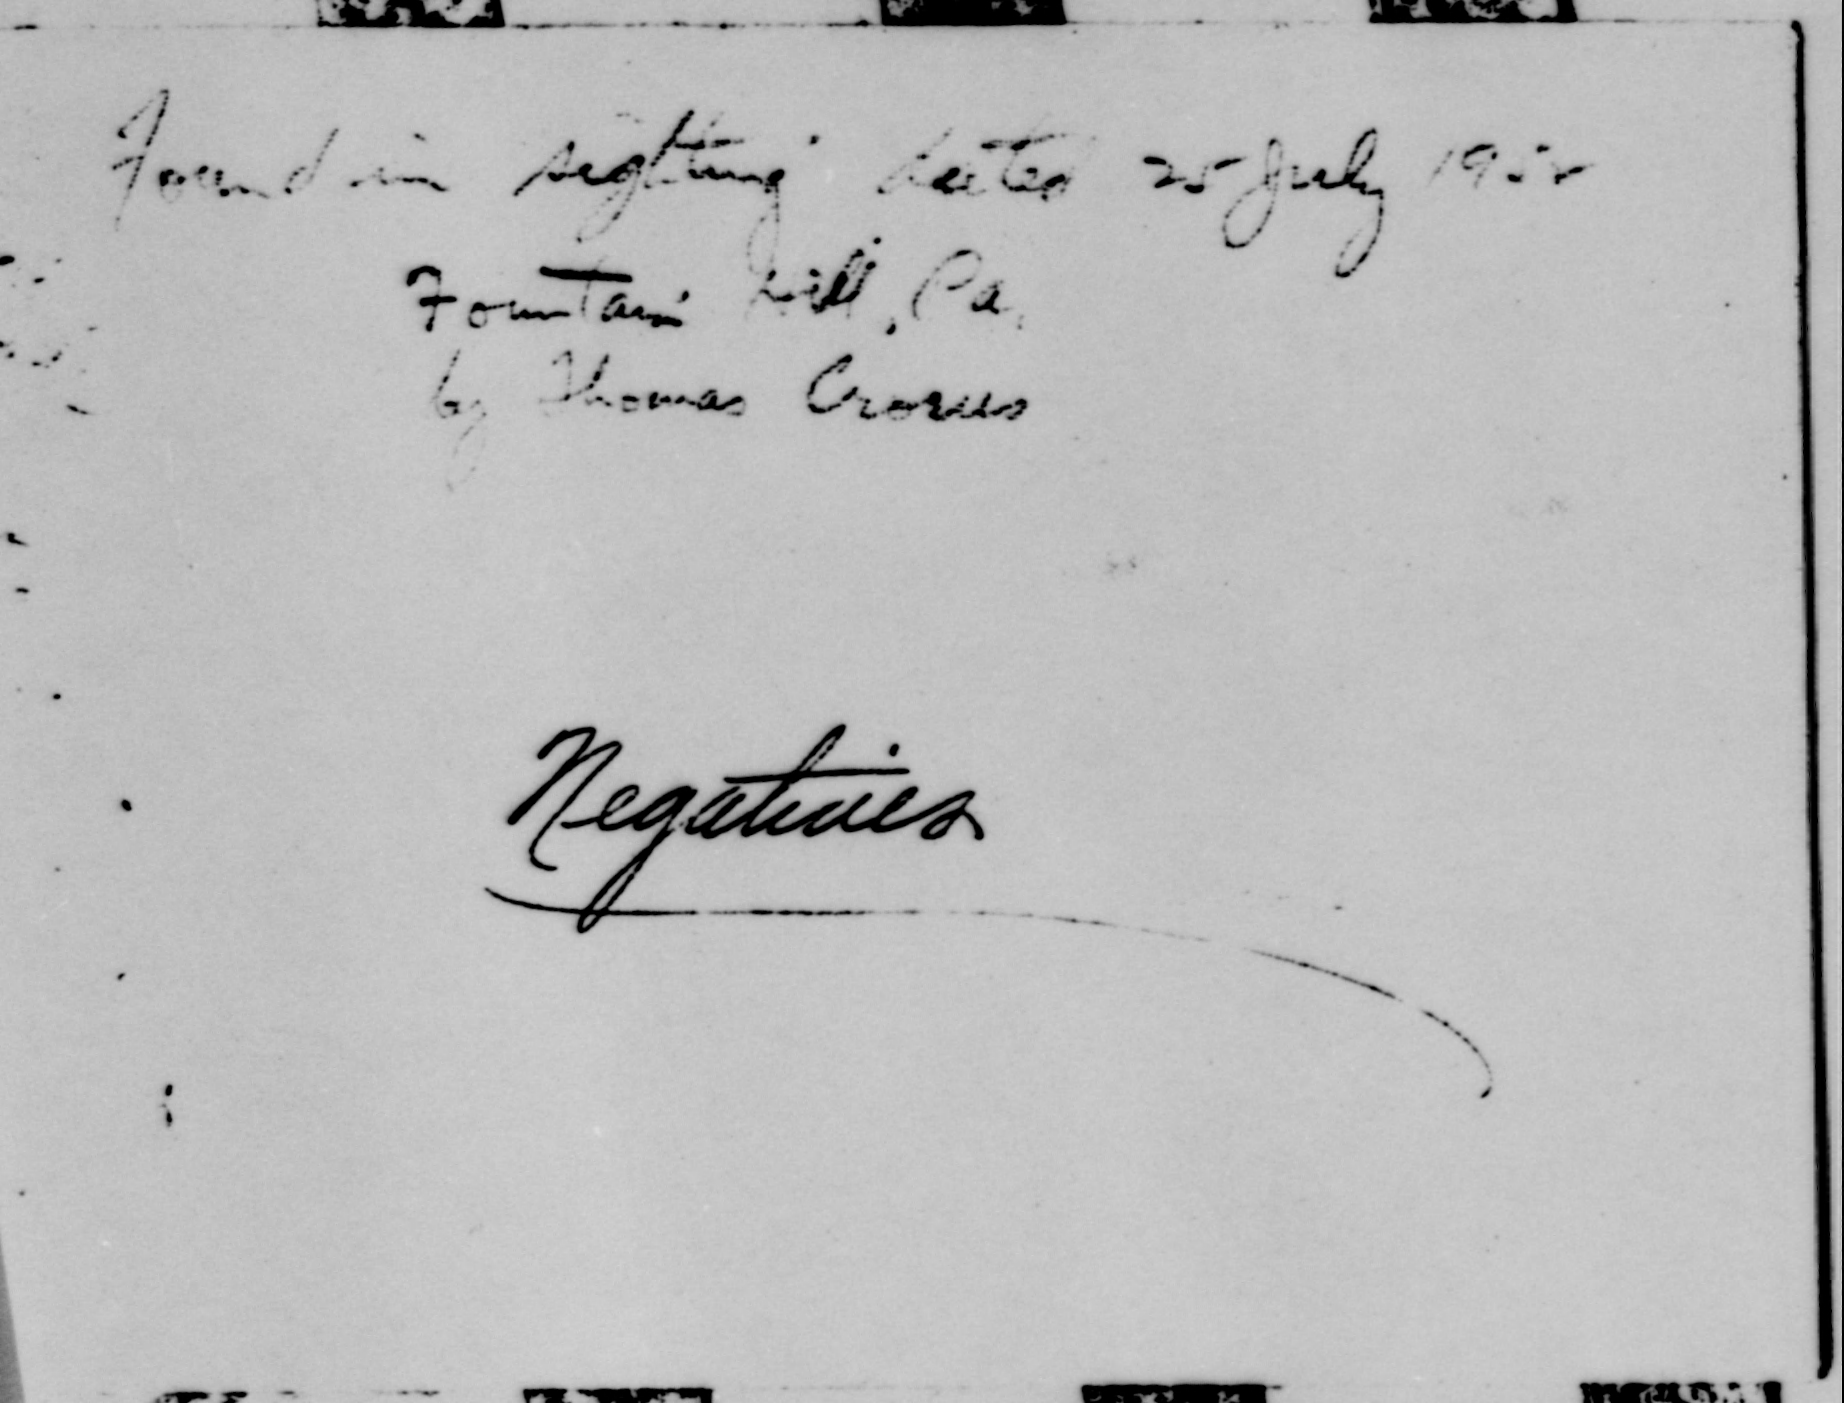 Found in sighting dated 25 July 1952
Fountain Hill, Pa.
by Thomas
Negatives